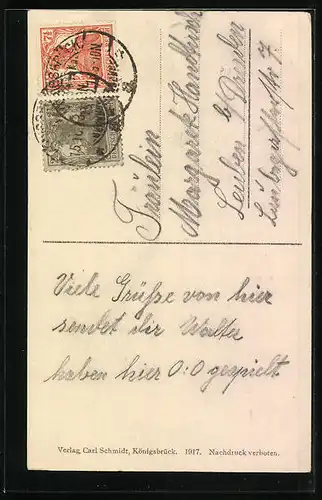 Fräulein
Margarete
Leuben b/ Dresden
Viele Grüße von hier
sendet dir Walter
haben hier 0:0 gespielt
Verlag Carl Schmidt, Königsbrück. 1917. Nachdruck verboten.